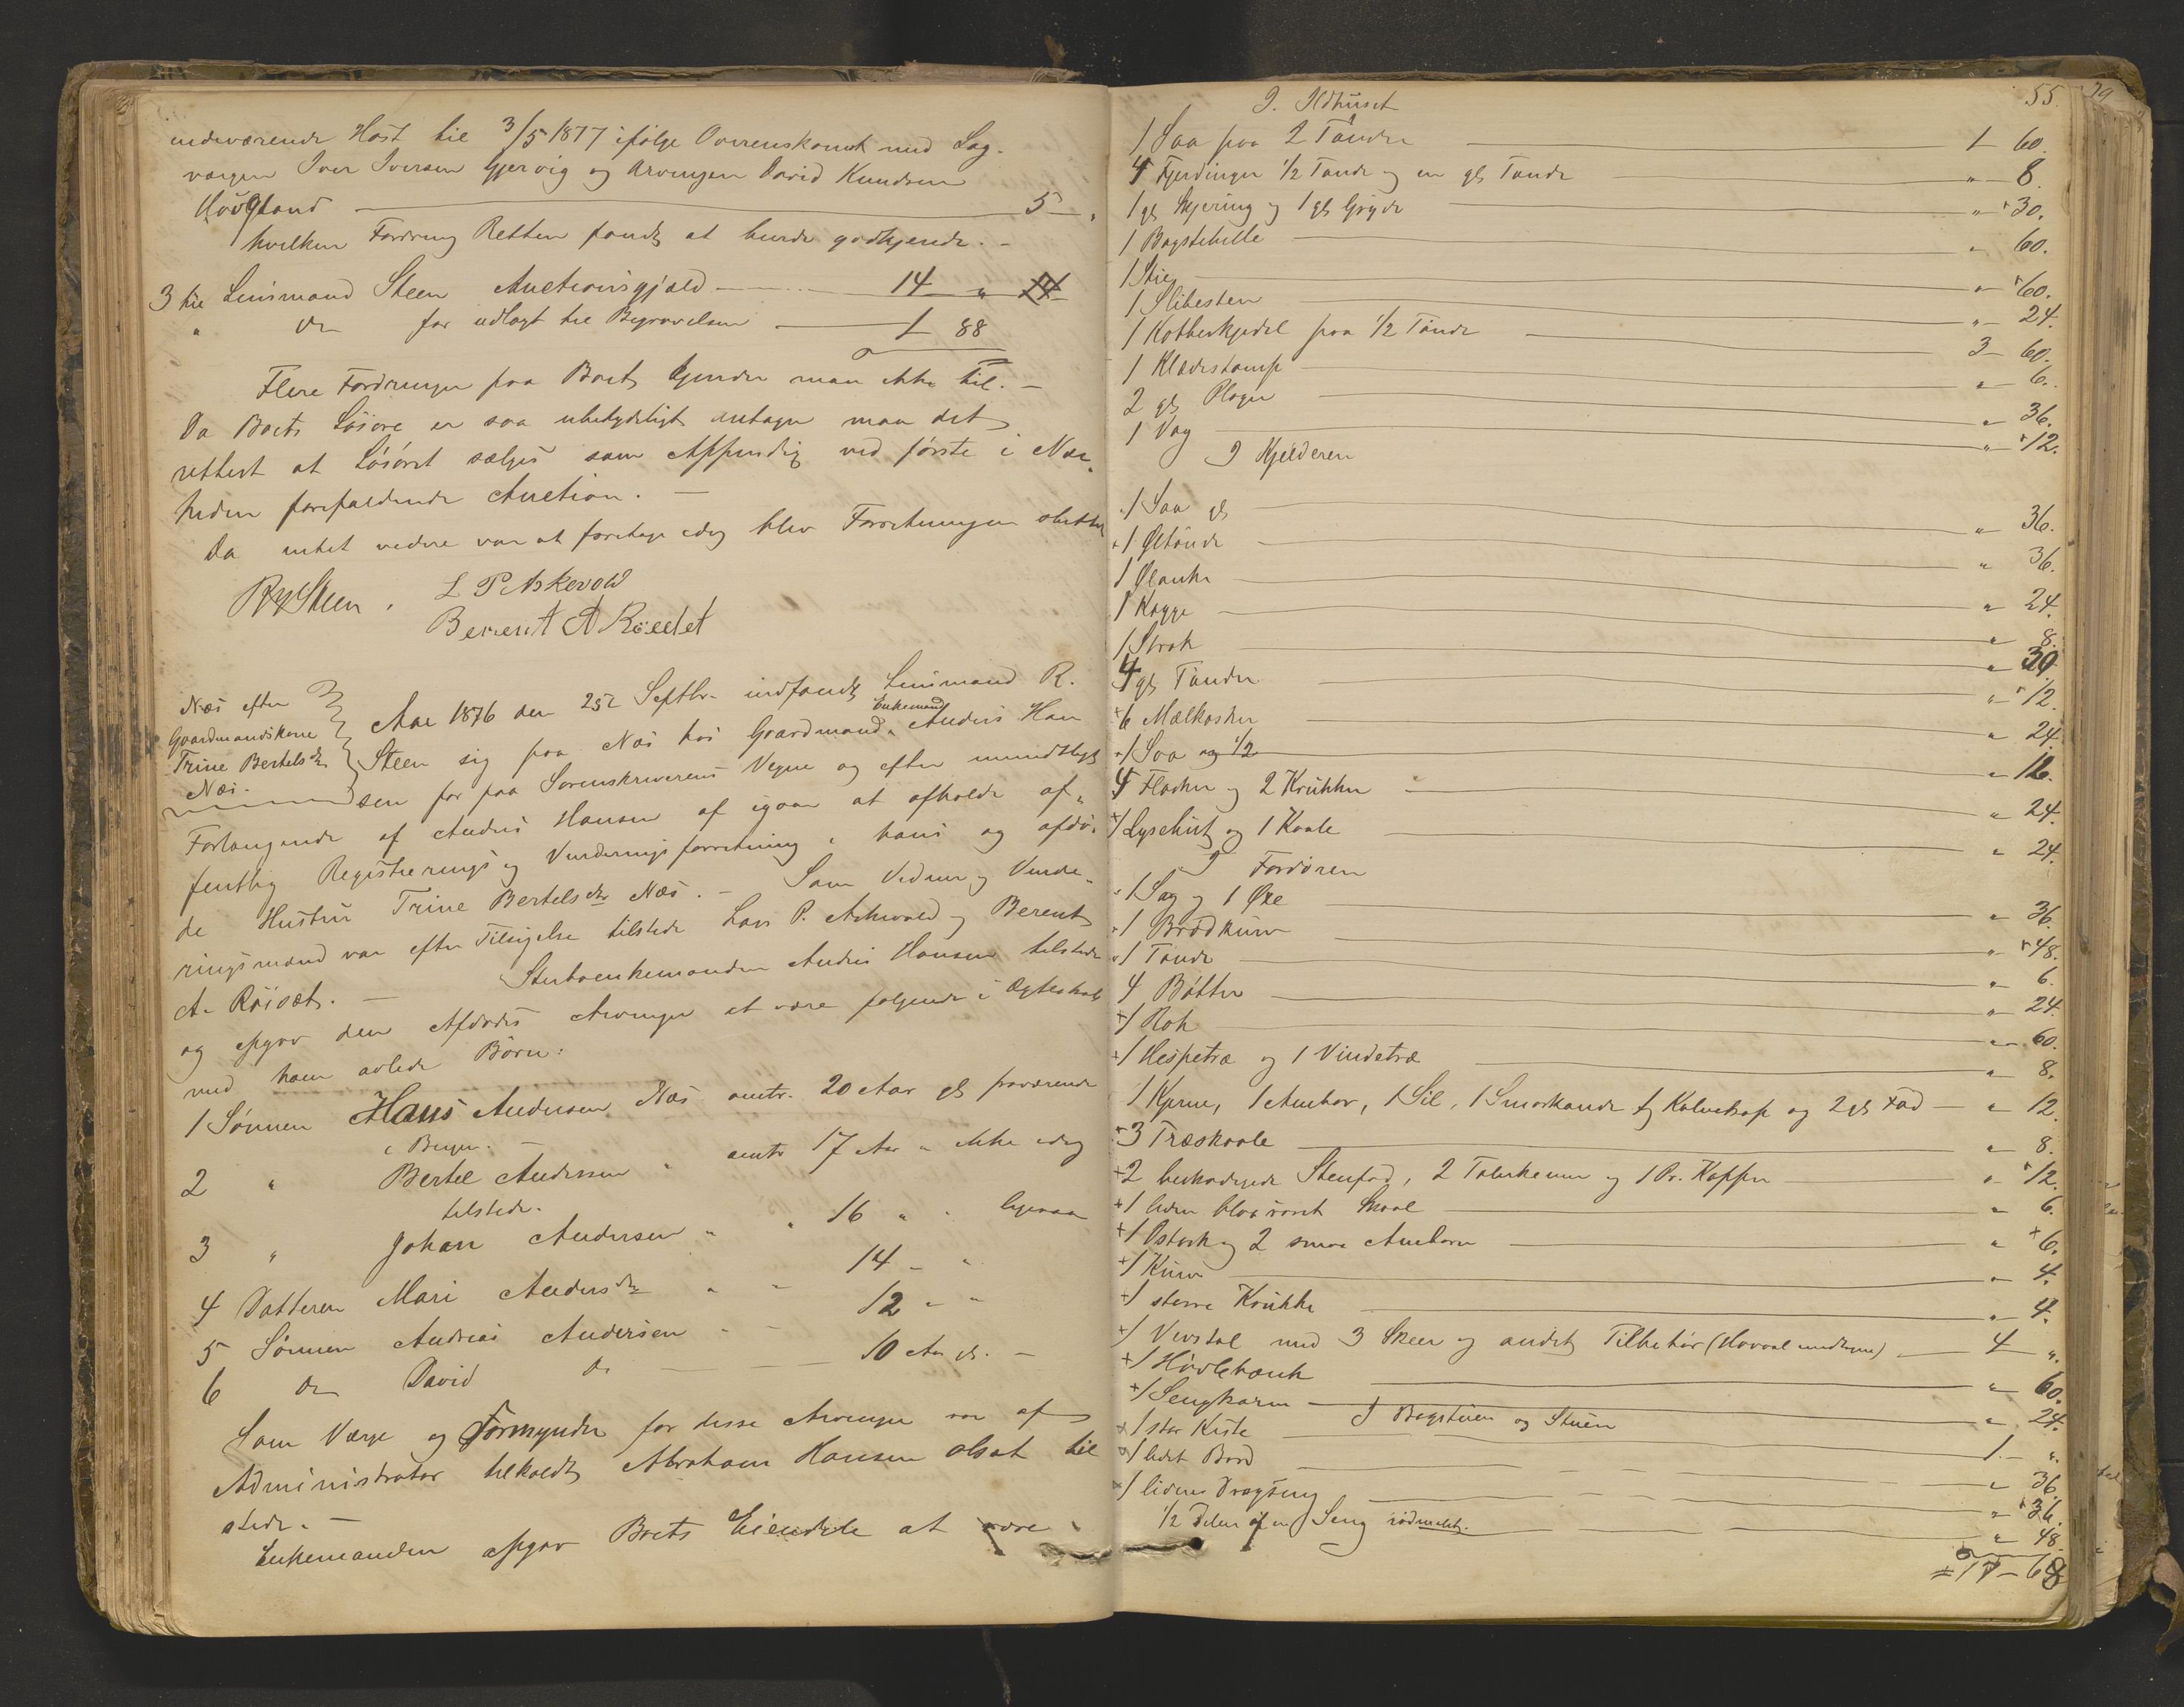 indeværende Høst til 3/5 1877 ifølge Overenskomst med Lag-
værgen Iver Iversen Gjervig og Arvingen David Knudsen
Høvgland 5 "
hvilken Fordring Retten fandt at burde godkjende. -
3 til Lensmand Steen Auctionsgjæld 14 " 14
" do for udlagt til Begravelsen 1 88
Flere Fordringer paa Boet kjender man ikke til. -
Da Boets Løsøre er saa ubetydeligt antager man det
rettest at Løsøret sælges som Appendix ved første i Nær-
heden forefaldende Auction. -
Da intet videre var at foretage idag blev Forretningen sluttet
R Steen. L P Askevold
Berent A Röiset
Næs efter
Gaardmandskone
Trine Bertelsdr
Næs.
Aar 1876 den 25de Septbr. indfandt Lensmand R.
Steen sig paa Næs hos Gaardmand Enkemand Anders Han
sen for paa Sorenskriverens Vegne og efter mundtligt
Forlangende af Anders Hansen af igaar at afholde of-
fentlig Registrerings og Vurderingsforretning i hans og afdø-
de Hustru Trine Bertelsdr Næs. - Som Vidner og Vurde-
ringsmænd var efter Tilsigelse tilstede Lars P. Askevold og Berent
A. Röisæt. - Sterboenkemanden Anders Hansen tilstede
og opgav den Afdødes Arvinger at være følgende i Ægteskab
med ham avlede Börn:
1 Sönnen Hans Andersen Næs omtr. 20 Aar gl fraværende
i Bergen. -
2 " Bertel Andersen " omtr 17 Aar " ikke idag
tilstede.
3 " Johan Andersen " " 16 " " ligesaa
4 Datteren Mari Andersdr " " 14 " "
5 Sönnen Andreas Andersen " " 12 " "
6 do David do 10 Aar gl. -
Som Værge og Formynder for disse Arvinger var af
Administrator tilkaldt Abraham Hansen til
stede. -
Enkemanden opgav Boets Eiendele at være:
55.
I. Ildhuset
1 Saa paa 2 Tønder 1 60.
4 Fjerdinger 1/2 Tønde og en gl Tønde " 8.
1 gl Kjering og 1 gl Gryde " 30.
1 Bagstehelle " 60.
1 Stie " 60.
1 Slibesten " 24.
1 Kobberkjedel paa 1/2 Tønde 3 60.
1 Klædestamp " 6.
2 gl Ploger " 36.
1 Vog " 12.
I Kjelderen
1 Saa gl " 36.
1 Øltønde " 36.
1 Ølanker " 24.
1 Kagge " 8.
1 Strok " 30
4 gl Tønder " 12.
6 Mælkasker " 24
1 Saa og 1/2 " 12.
4 Flasker og 2 Krukker " 24.
1 Lysekist og 1 Kaale " 24.
I Fordøren
1 Sag og 1 Øxe " 36.
1 Brødkurv " 48.
1 Tønde " 6.
4 Bøtter " 24.
1 Rok " 60.
1 Hespetræ og 1 Vindetræ " 8.
1 Kjerne, 1 Ambar, 1 Sil, 1 Smørkande og 2 gl Fad " 12
3 Træskaale " 8.
2 beskadigede Stenfad, 2 Tallerkener og 1 Pr. Kopper " 12.
1 liden blaa Skaal " 6.
1 Ostask og 2 smaa Ambarer " 6.
1 Kurv " 4.
1 større Krukke " 4.
1 Vævstol med 3 Skeer og andet Tilbehør 4 ".
1 Høvlebænk " 60.
1 Sengkarm " 24.
I Bagstuen og Stuen
1 stor Kiste 1. ".
1 lidet Bord " 36.
1 liden Dragseng " 36.
1/2 Delen af en Seng rødmalet. " 48.
17 - 68